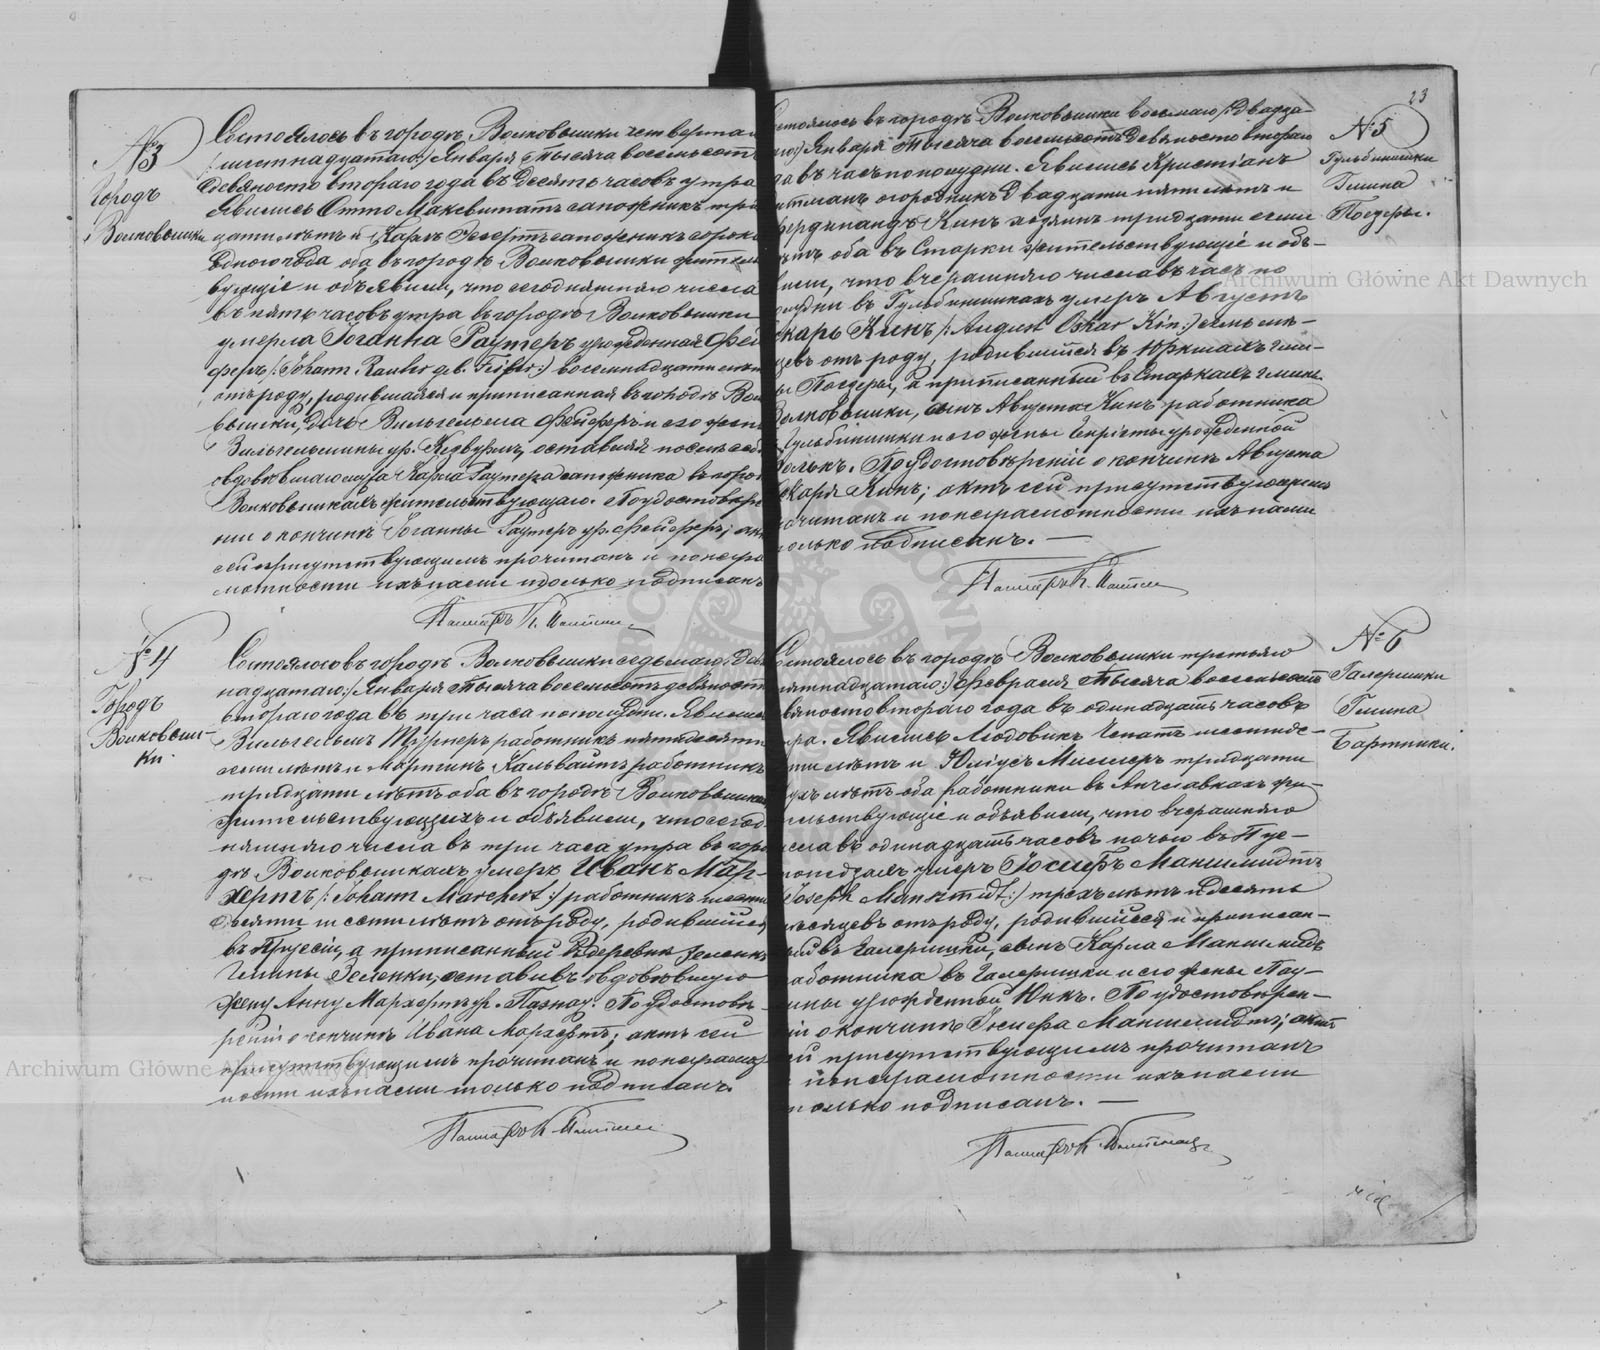 № 3
Городъ
Волковышки
Состоялось въ городѣ Волковышки четверта
/:шестнадцатаго:/ Января Тысяча восемьсотъ
девяносто втораго года въ десять часовъ утра
Явились Отто Максвитатъ сапожникъ три
цати лѣтъ и Карлъ Эсертъ сапожникъ сорока
одного года оба въ городѣ Волковышки жител
вующіе и объявили, что сегодняшняго числа
въ пять часовъ утра въ городѣ Волковышки
умерла Іоганна Раутеръ урожденная Фей
феръ /:Johann Rauter geb. Feifer:/ восемнадцати лѣт
отъ роду, родившаяся и приписанная въ городѣ Вол
вышки, дочь Вильгельма Фейферъ и его жены
Вильгельмины ур. оставивъ послѣ себя
овдовѣвшаго мужа Карла Раутера сапожника въ горо
Волковышкахъ жительствующаго. По удостовѣре
ніи о кончинѣ Іоганны Раутеръ ур. Фейферъ, акт
сей присутствующимъ прочитанъ и по негра
мотности ихъ нами только подписанъ
Пасторъ К.
№ 4
Городъ
Волковыш-
ки
Состоялось въ городѣ Волковышки седьмаго /:Дев
надцатаго:/ Января Тысяча восемьсотъ девяност
втораго года въ три часа пополудни. Явились
Вильгельмъ Турнеръ работникъ пятидесяти
семи лѣтъ и Мартинъ Кальвайтъ работникъ
тридцати лѣтъ оба въ городѣ Волковышках
жительствующихъ и объявили, что сегод
няшняго числа въ три часа утра въ горо
дѣ Волковышкахъ умеръ Иванъ Мар-
хертъ /:Johann Marchert:/ работникъ шести
десяти шести лѣтъ отъ роду, родившійся
въ Пруссіи, а приписанный въ деревнѣ Зеленк
Гмины Зеленки, оставивъ овдовѣвшую
жену Анну Мархертъ ур. Пазнау. По удостовѣ-
реніи о кончинѣ Ивана Мархертъ, актъ сей
присутствующимъ прочитанъ и по неграмот
ности ихъ нами только подписанъ.
Пасторъ К.
23
№ 5
Гульбинишки
Гмина
Погдеры.
стоялось въ городѣ Волковышки восьмаго /:Двадца-
аго:/ Января Тысяча восемьсотъ девяносто втораго
да въ часъ пополудни. Явились Христіанъ
огородникъ двадцати пяти лѣтъ и
Фердинандъ Кинъ хозяинъ тридцати семи
лѣтъ оба въ Старки жительствующіе и объ-
вили, что вчерашняго числа въ часъ по
полудни въ Гульбинишкахъ умеръ Августъ
скаръ Кинъ /:August Oskar Kin:/ семь мѣ-
цевъ отъ роду, родившійся въ Юркшахъ гми-
ны Погдеры, а приписанный въ Старкахъ гмины
Волковышки, сынъ Августа Кинъ работника
Гульбинишки и его жены Генріеты урожденной
По удостовѣреніи о кончинѣ Августа
скаря Кинъ, актъ сей присутствующимъ
очитанъ и по неграмотности ихъ нами
только подписанъ. —
Пасторъ К.
№ 6
Галеришки
Гмина
Бартники.
стоялось въ городѣ Волковышки третьяго
ятнадцатаго:/ Февраля Тысяча восемьсотъ
вяносто втораго года въ одинадцать часовъ
ра. Явились Людовикъ шестиде-
ти лѣтъ и Юліусъ Миллеръ тридцати
ухъ лѣтъ оба работники въ Анчлавкахъ жи-
льствующіе и объявили, что вчерашняго
исла въ одинадцать часовъ ночью въ
умеръ Іосифъ Маншмидтъ
Joseph Manszmidt:/ трехъ лѣтъ и десять
мѣсяцевъ отъ роду, родившійся и приписан-
ый въ Галеришки, сынъ Карла Маншмидтъ
работника въ Галеришки и его жены Пау-
лины урожденной Юнкъ. По удостовѣрен-
іи о кончинѣ Іосифа Маншмидтъ, актъ
ей присутствующимъ прочитанъ
и по неграмотности ихъ нами
только подписанъ. —
Пасторъ К.
Archiwum Główne Akt Dawnych
Archiwum Główne Akt Dawnych